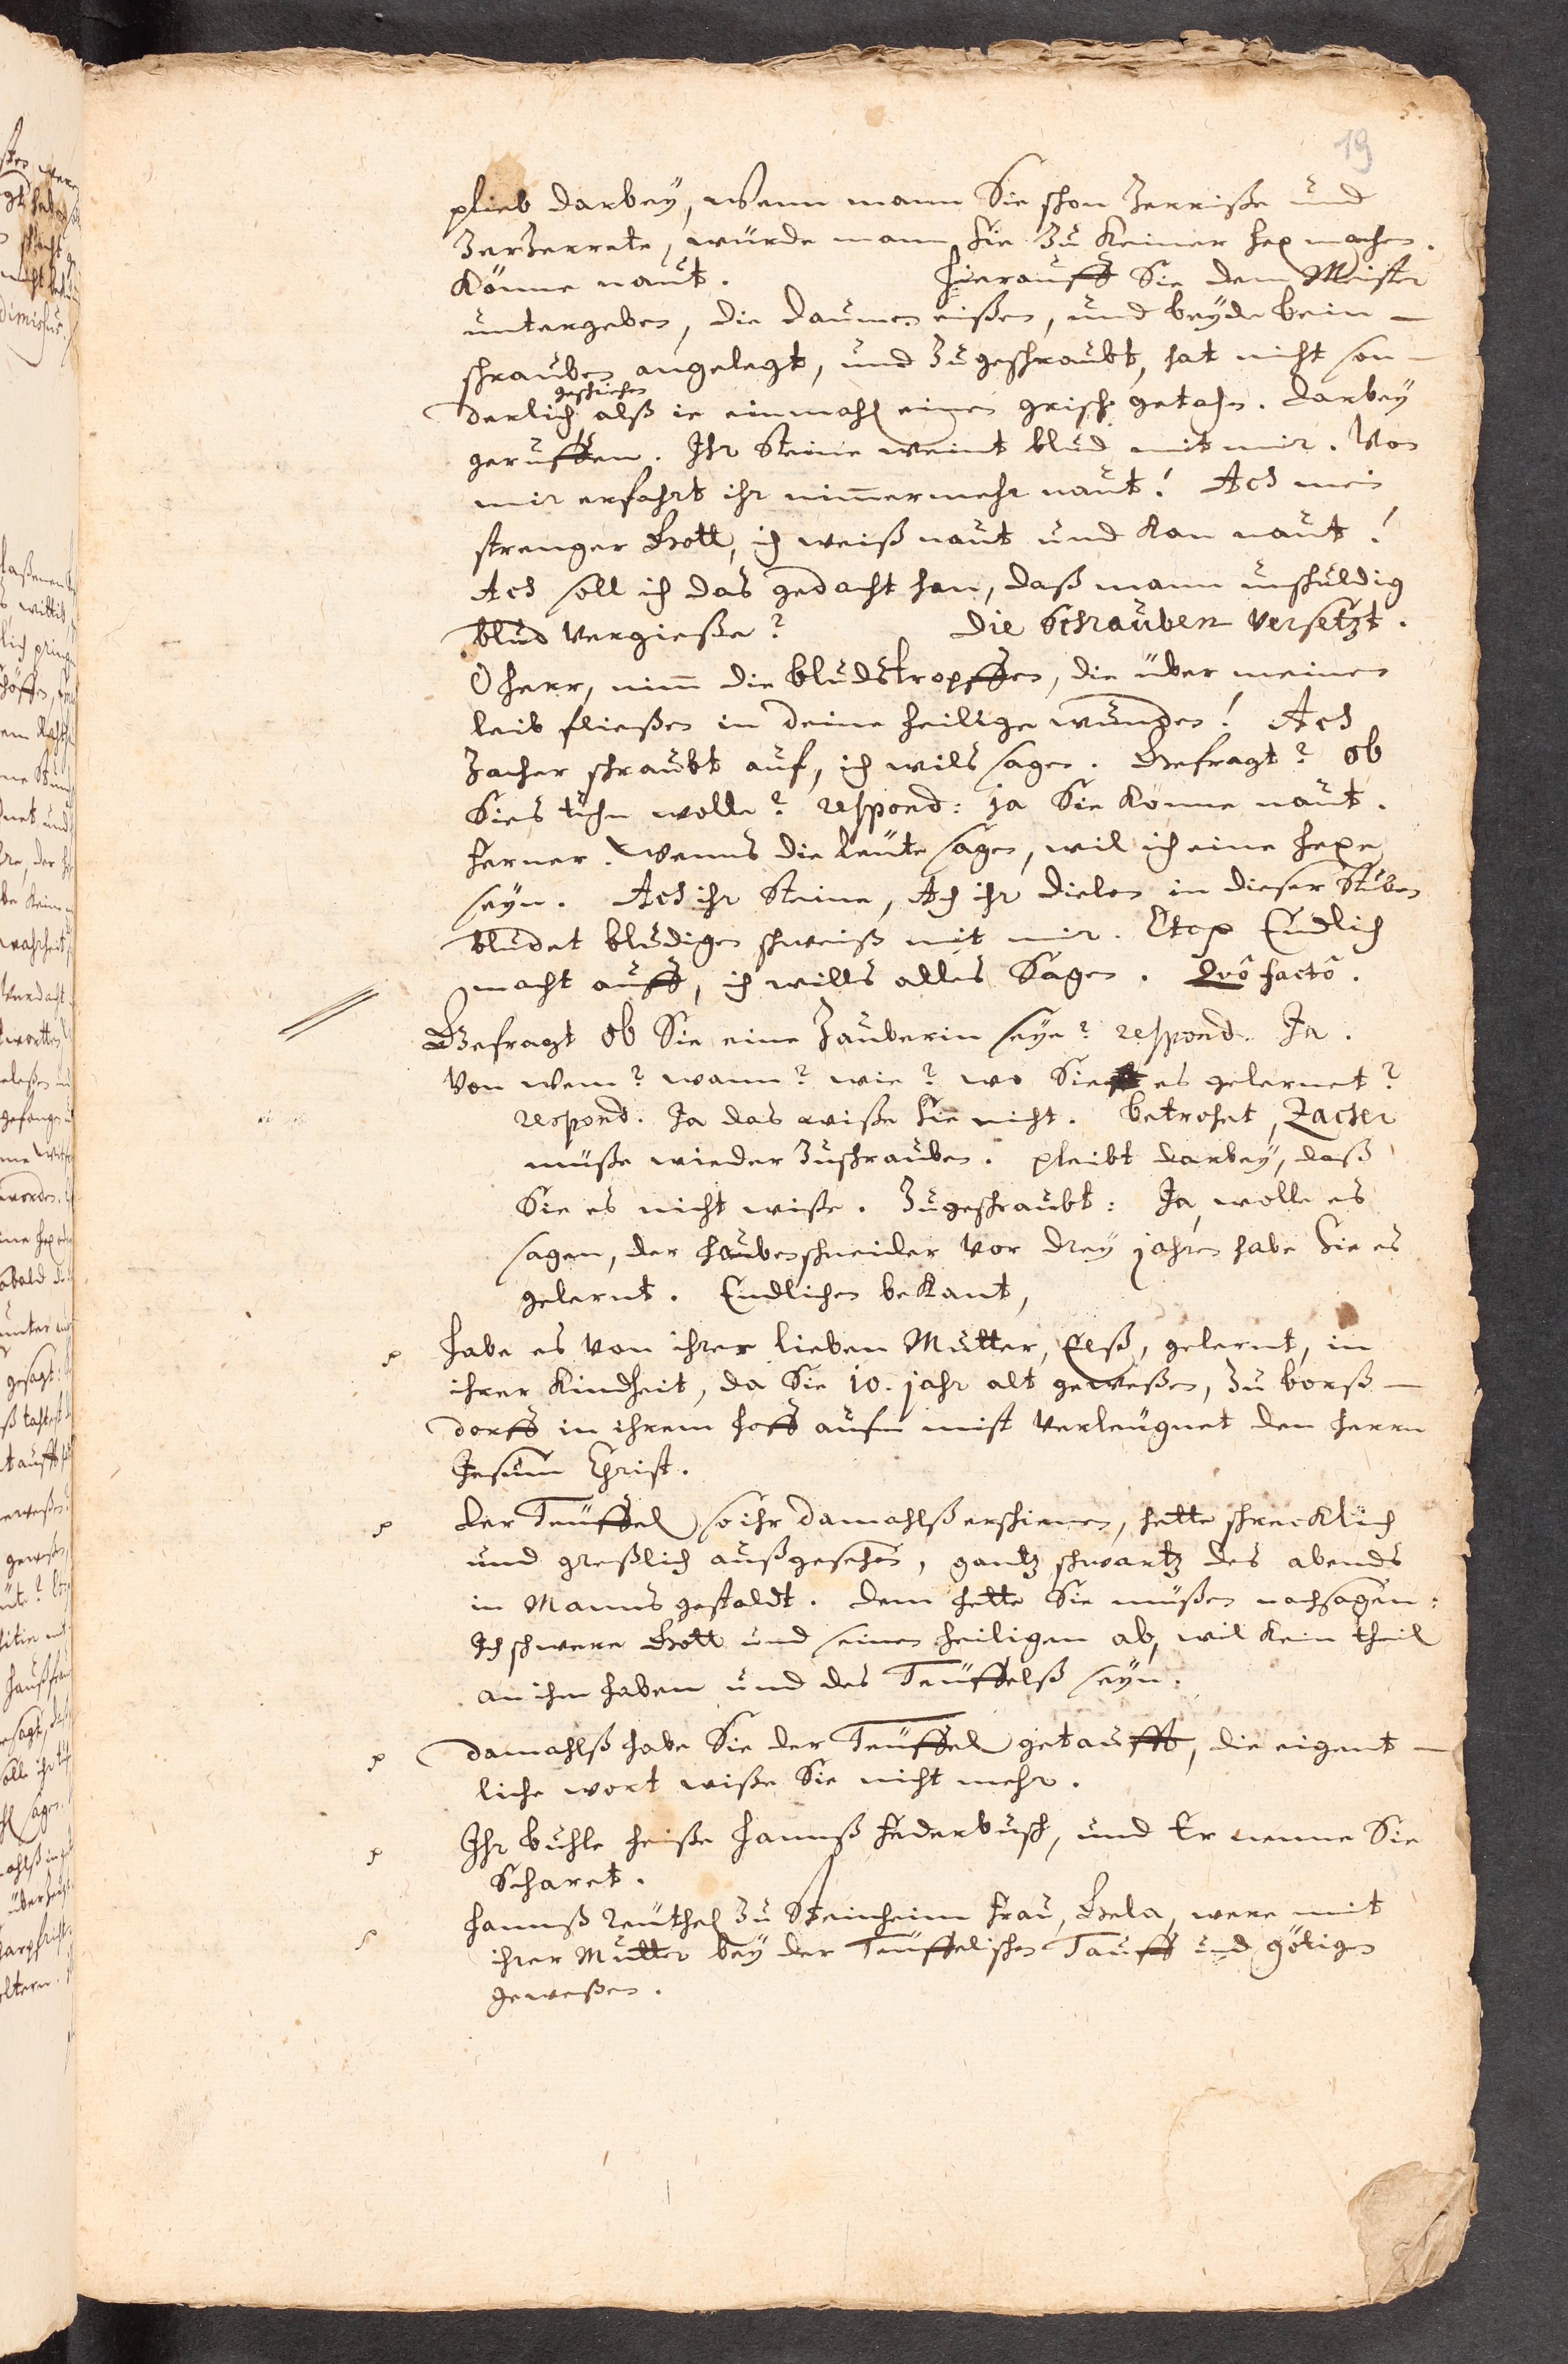 19
plieb darbey, wenn mann Sie schon Zerriße und
ZerZerrete, würde mann sie Zu keiner hex machen.
könne naut. Hierauff Sie dem Meister
untergeben, die daumen eißen, und beyde bein-
schrauben angelegt, und Zugeschraubt, hat nicht son-
geschiehen
derlich alß ie einmahl einen grisch getahn. darbey
geruffen. Ihr Steine weint blud mit mir. Von
mir erfahrt ihr nimmermehr naut! Ach mein
strenger Gott, ich weiß naut und kan naut!
Ach soll ich das gedacht han, daß mann unschuldig
blud vergieße? Die Schrauben versetzt.
O herr, nimm die bludstropffen, die über meinen
leib fließen in deine heilige wunden! Ach
Zacher schraubt auf, ich wils sagen. Gefragt? Ob
Sies tuhn wolle? respond: ja Sie könne naut.
ferner. Wenns die leüte sagen, wil ich eine hexe
seyn. Ach ihr Steine, Ach ihr dielen in dieser Stuben
bludet bludigen schweiß mit mir. Etc Endlich
macht auff, ich wills alles Sagen. Quô factô.
Gefragt Ob Sie eine Zauberin seye? respond. Ja.
Von wem? wann? wie? wo Sie es gelernet?
respond. Ja das wiße sie nicht. betrohet, Zacher
müße wieder Zuschrauben. pleibt darbey, daß
Sie es nicht wiße. Zugeschraubt: Ja, wolle es
sagen, der haubenschneider vor drey jahren habe sie es
gelernt. Endlichen bekant,
habe es von ihrer lieben Mutter, Elß, gelernt, in
ihrer Kindheit, da Sie 10. jahr alt geweßen, Zu borß-
dorff in ihrem hoff aufm mist verleugnet den herrn
Jesum Christ.
der Teüffel so ihr damahlß erschienen, hette schrecklich
und greßlich außgesehen, gantz schwartz des abends
in Manns gestaldt. dem hette Sie müßen nachsagen:
Ich schwere Gott und seinen heiligen ab, wil kein theil
an ihm haben und des Teüffelß seyn.
damahlß habe Sie der Teüffel getaufft, die eigent-
liche wort wiße Sie nicht mehr.
Ihr buhle heiße Hannß Federbusch, und Er nenne Sie
Scharet.
Hannß Reuthel Zu Steinheim frau, Gela, were mit
ihrer Mutter bey der Teüffelischen Tauff und götigen
geweßen.